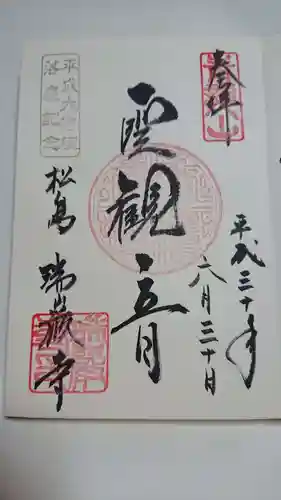 奉拝
平成三十年
六月三十日
聖観音
平成大修理
落慶記念
松島
瑞巌寺